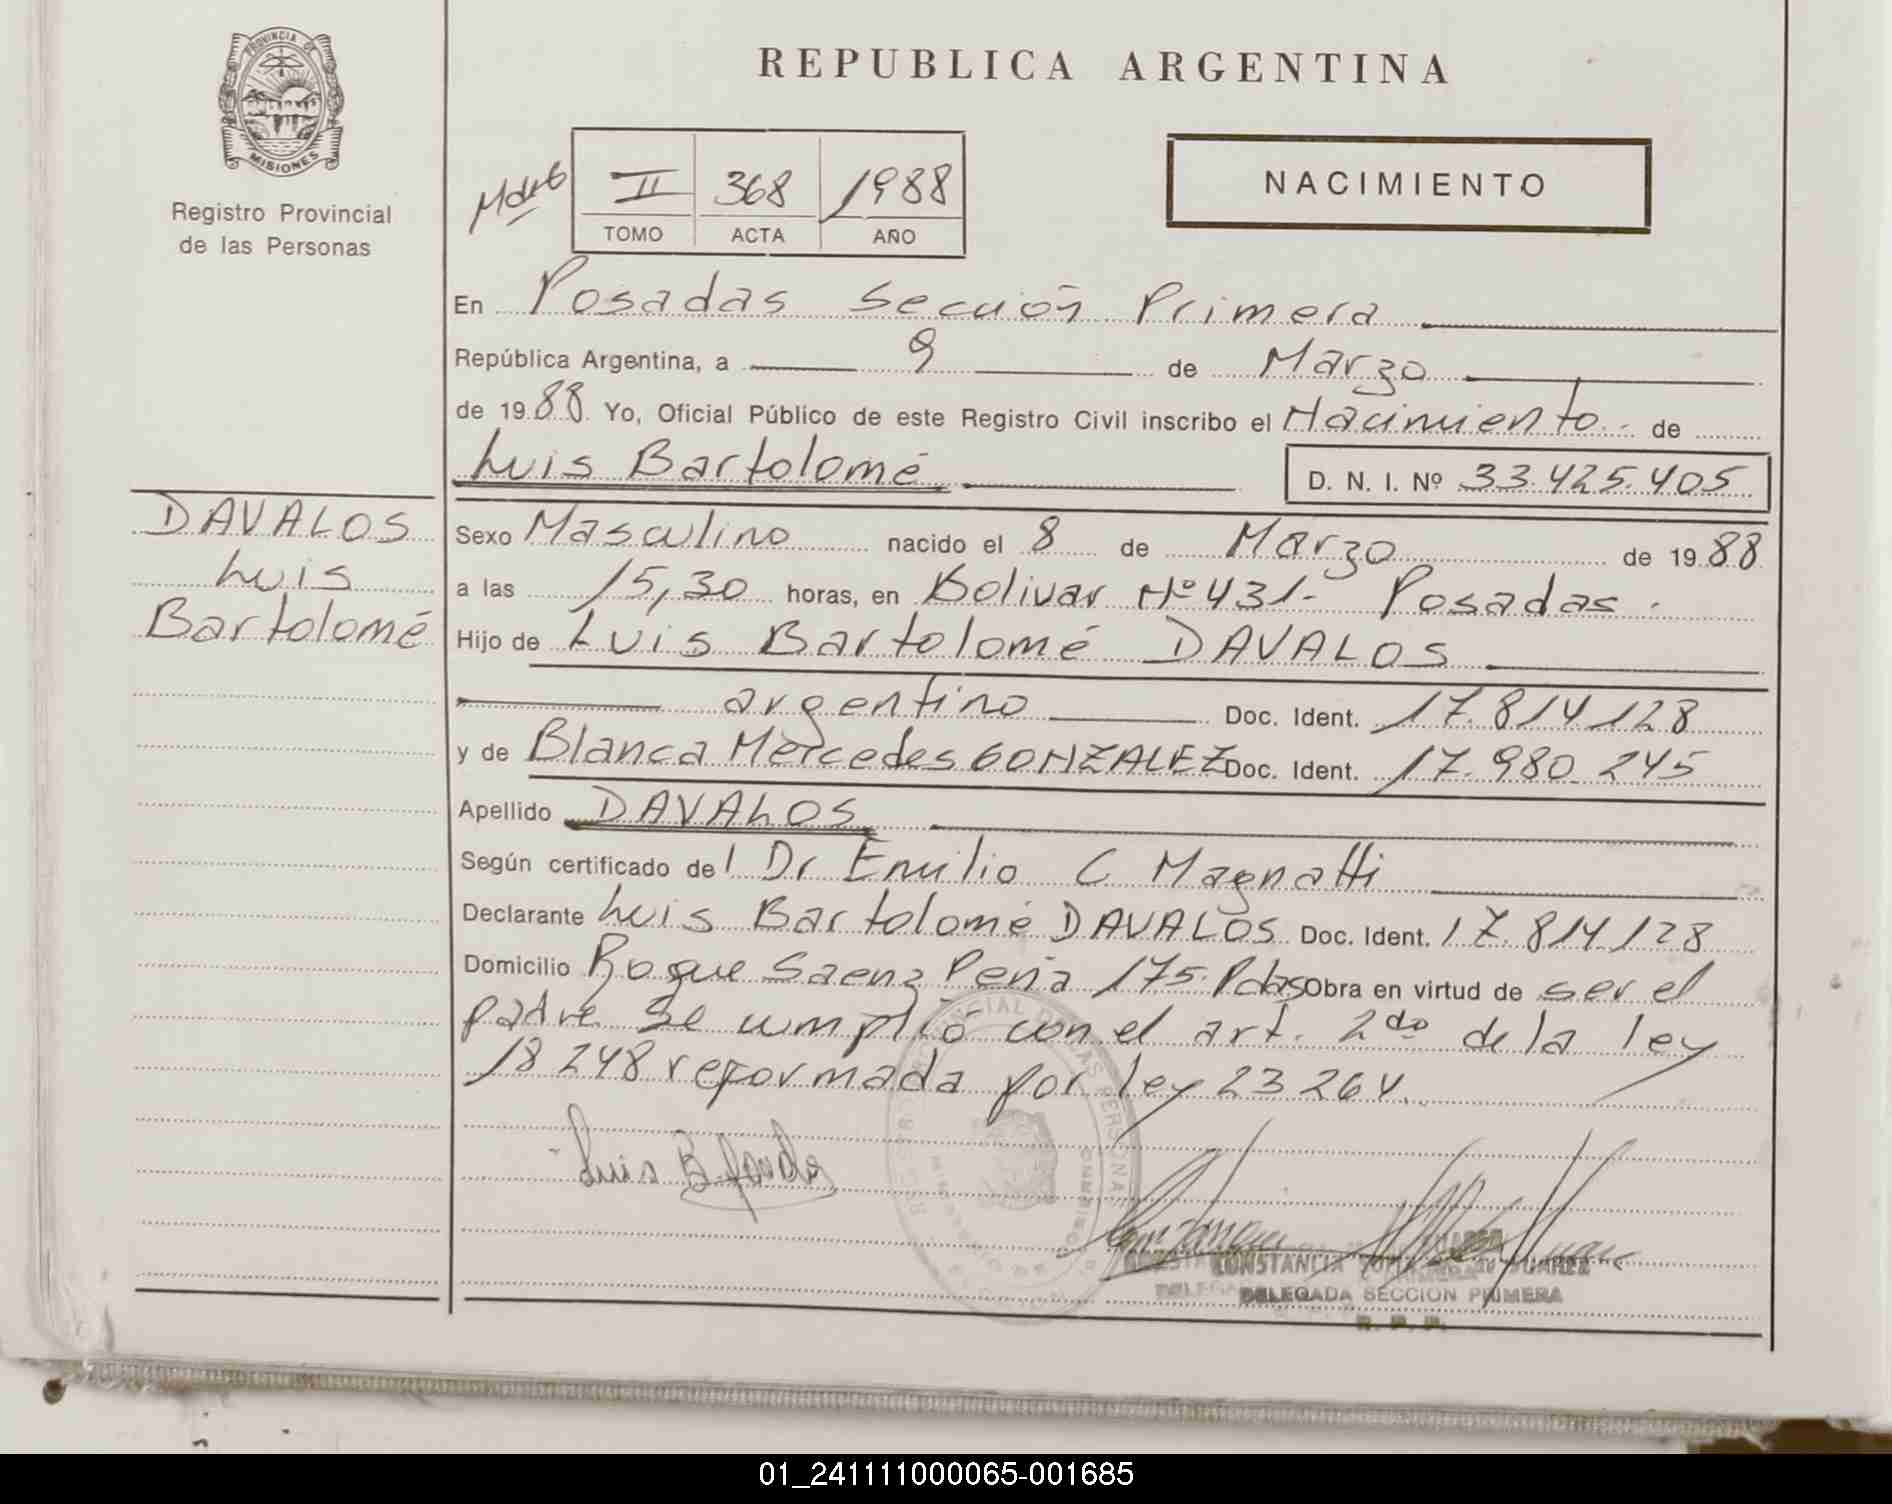 PROVINCIA DE
MISIONES
Registro Provincial
de las Personas
REPUBLICA ARGENTINA
II 368 1988
TOMO ACTA AÑO
NACIMIENTO
En Posadas Sección Primera
República Argentina, a 9 de Marzo
de 1988 Yo, Oficial Público de este Registro Civil inscribo el Nacimiento de
Luis Bartolomé D. N. I. Nº 33.425.405
DAVALOS
Luis
Bartolomé
Sexo Masculino nacido el 8 de Marzo de 1988
a las 15,30 horas, en Bolivar Nº 431- Posadas.
Hijo de Luis Bartolomé DAVALOS
argentino Doc. Ident. 17.814.128
y de Blanca Mercedes GONZALEZ Doc. Ident. 17.980.245
Apellido DAVALOS
Según certificado del Dr Emilio C Magnatti
Declarante Luis Bartolomé DAVALOS Doc. Ident. 17.814.128
Domicilio Roque Saenz Peña 175. Pdas Obra en virtud de ser el
padre Se cumplió con el art. 2do de la ley
18248 reformada por ley 23264.
Luis B Davalos
CONSTANCIA SUAREZ
DELEGADA SECCION PRIMERA
R. P. P.
01_241111000065-001685